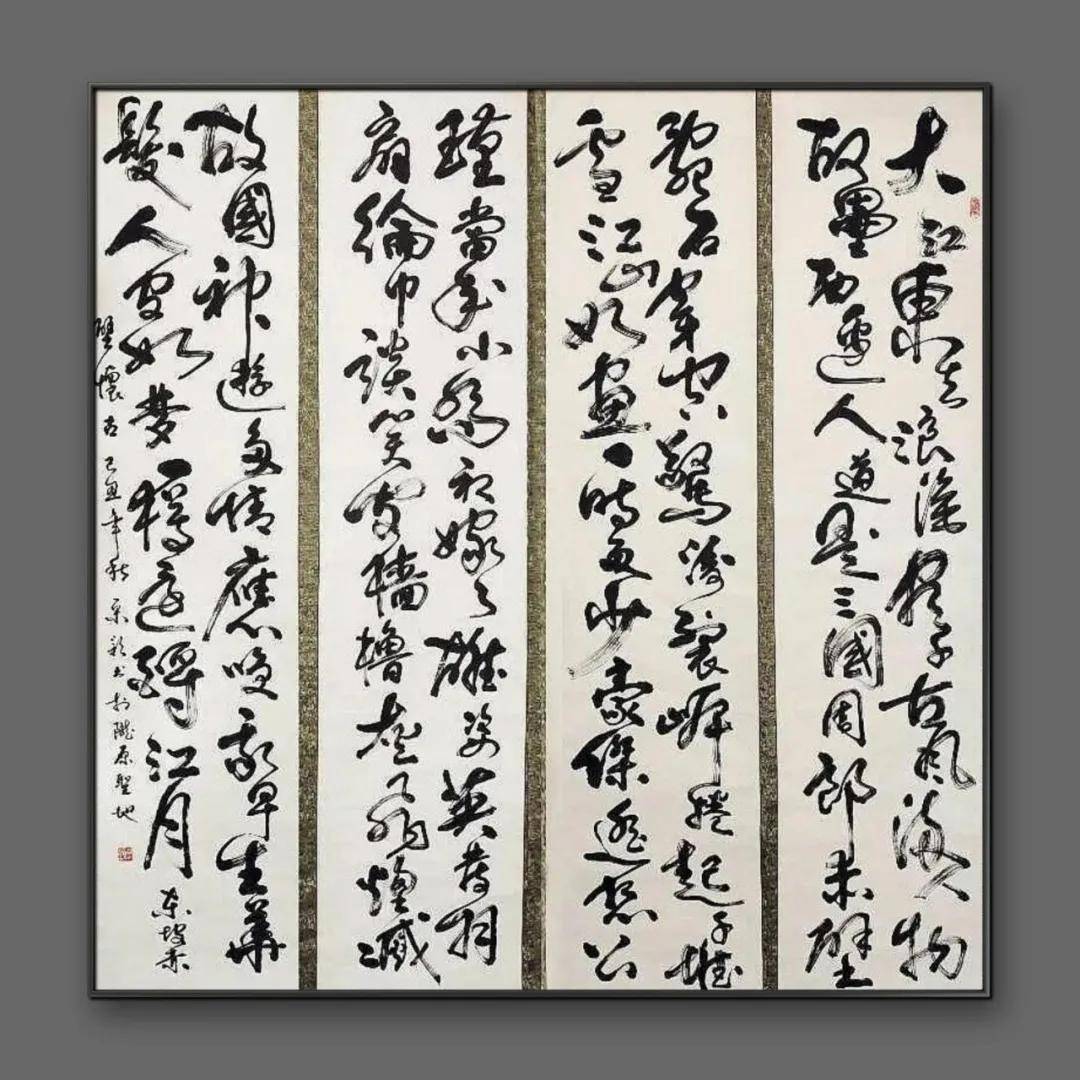 大江東去浪淘盡千古風流人物
故壘西邊人道是三國周郎赤壁
亂石穿空驚濤裂岸捲起千堆
雪江山如畫一時多少豪傑遙想公
瑾當年小喬初嫁了雄姿英發羽
扇綸巾談笑間檣櫓灰飛煙滅
故國神遊多情應咲我早生華
髮人間如夢一樽還酹江月 東坡赤
壁懷古 己丑年秋 書於隴原聖地